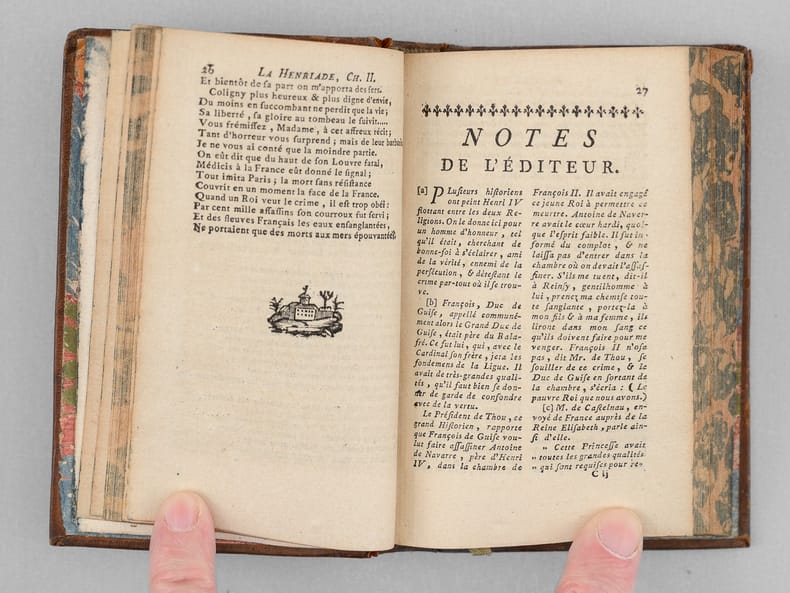 26 LA HENRIADE, CH. II.
Et bientôt de sa part on m'apporta des fers.
Coligny plus heureux & plus digne d'envie,
Du moins en succombant ne perdit que la vie;
Sa liberté, sa gloire au tombeau le suivit.....
Vous frémissez, Madame, à cet affreux récit;
Tant d'horreur vous surprend; mais de leur barbarie
Je ne vous ai conté que la moindre partie.
On eût dit que du haut de son Louvre fatal,
Médicis à la France eût donné le signal;
Tout imita Paris; la mort sans résistance
Couvrit en un moment la face de la France.
Quand un Roi veut le crime, il est trop obéi:
Par cent mille assassins son courroux fut servi;
Et des fleuves Français les eaux ensanglantées,
Ne portaient que des morts aux mers épouvantées.
27
NOTES
DE L'ÉDITEUR.
[a] Plusieurs historiens
ont peint Henri IV
flottant entre les deux Re-
ligions. On le donne ici pour
un homme d'honneur, tel
qu'il était, cherchant de
bonne-foi à s'éclairer, ami
de la vérité, ennemi de la
persécution, & détestant le
crime par-tout où il se trou-
ve.
[b] François, Duc de
Guise, appellé communé-
ment alors le Grand Duc de
Guise, était père du Bala-
fré. Ce fut lui, qui, avec le
Cardinal son frère, jeta les
fondemens de la Ligue. Il
avait de très-grandes quali-
tés, qu'il faut bien se don-
ner de garde de confondre
avec de la vertu.
Le Président de Thou, ce
grand Historien, rapporte
que François de Guise vou-
lut faire assassiner Antoine
de Navarre, père d'Henri
IV, dans la chambre de
François II. Il avait engagé
ce jeune Roi à permettre ce
meurtre. Antoine de Naver-
re avait le cœur hardi, quoi-
que l'esprit faible. Il fut in-
formé du complot, & ne
laissa pas d'entrer dans la
chambre où on devait l'assas-
siner. S'ils me tuent, dit-il
à Reinsy, gentilhomme à
lui, prenez ma chemise tou-
te sanglante, portez-la à
mon fils & à ma femme, ils
liront dans mon sang ce
qu'ils doivent faire pour me
venger. François II n'osa
pas, dit Mr. de Thou, se
souiller de ce crime, & le
Duc de Guise en sortant de
la chambre, s'écria: (Le
pauvre Roi que nous avons.)
[c] M. de Castelnau, en-
voyé de France auprès de la
Reine Elisabeth, parle ain-
si d'elle.
„ Cette Princesse avait
„ toutes les grandes qualités
„ qui sont requises pour re-
C ij